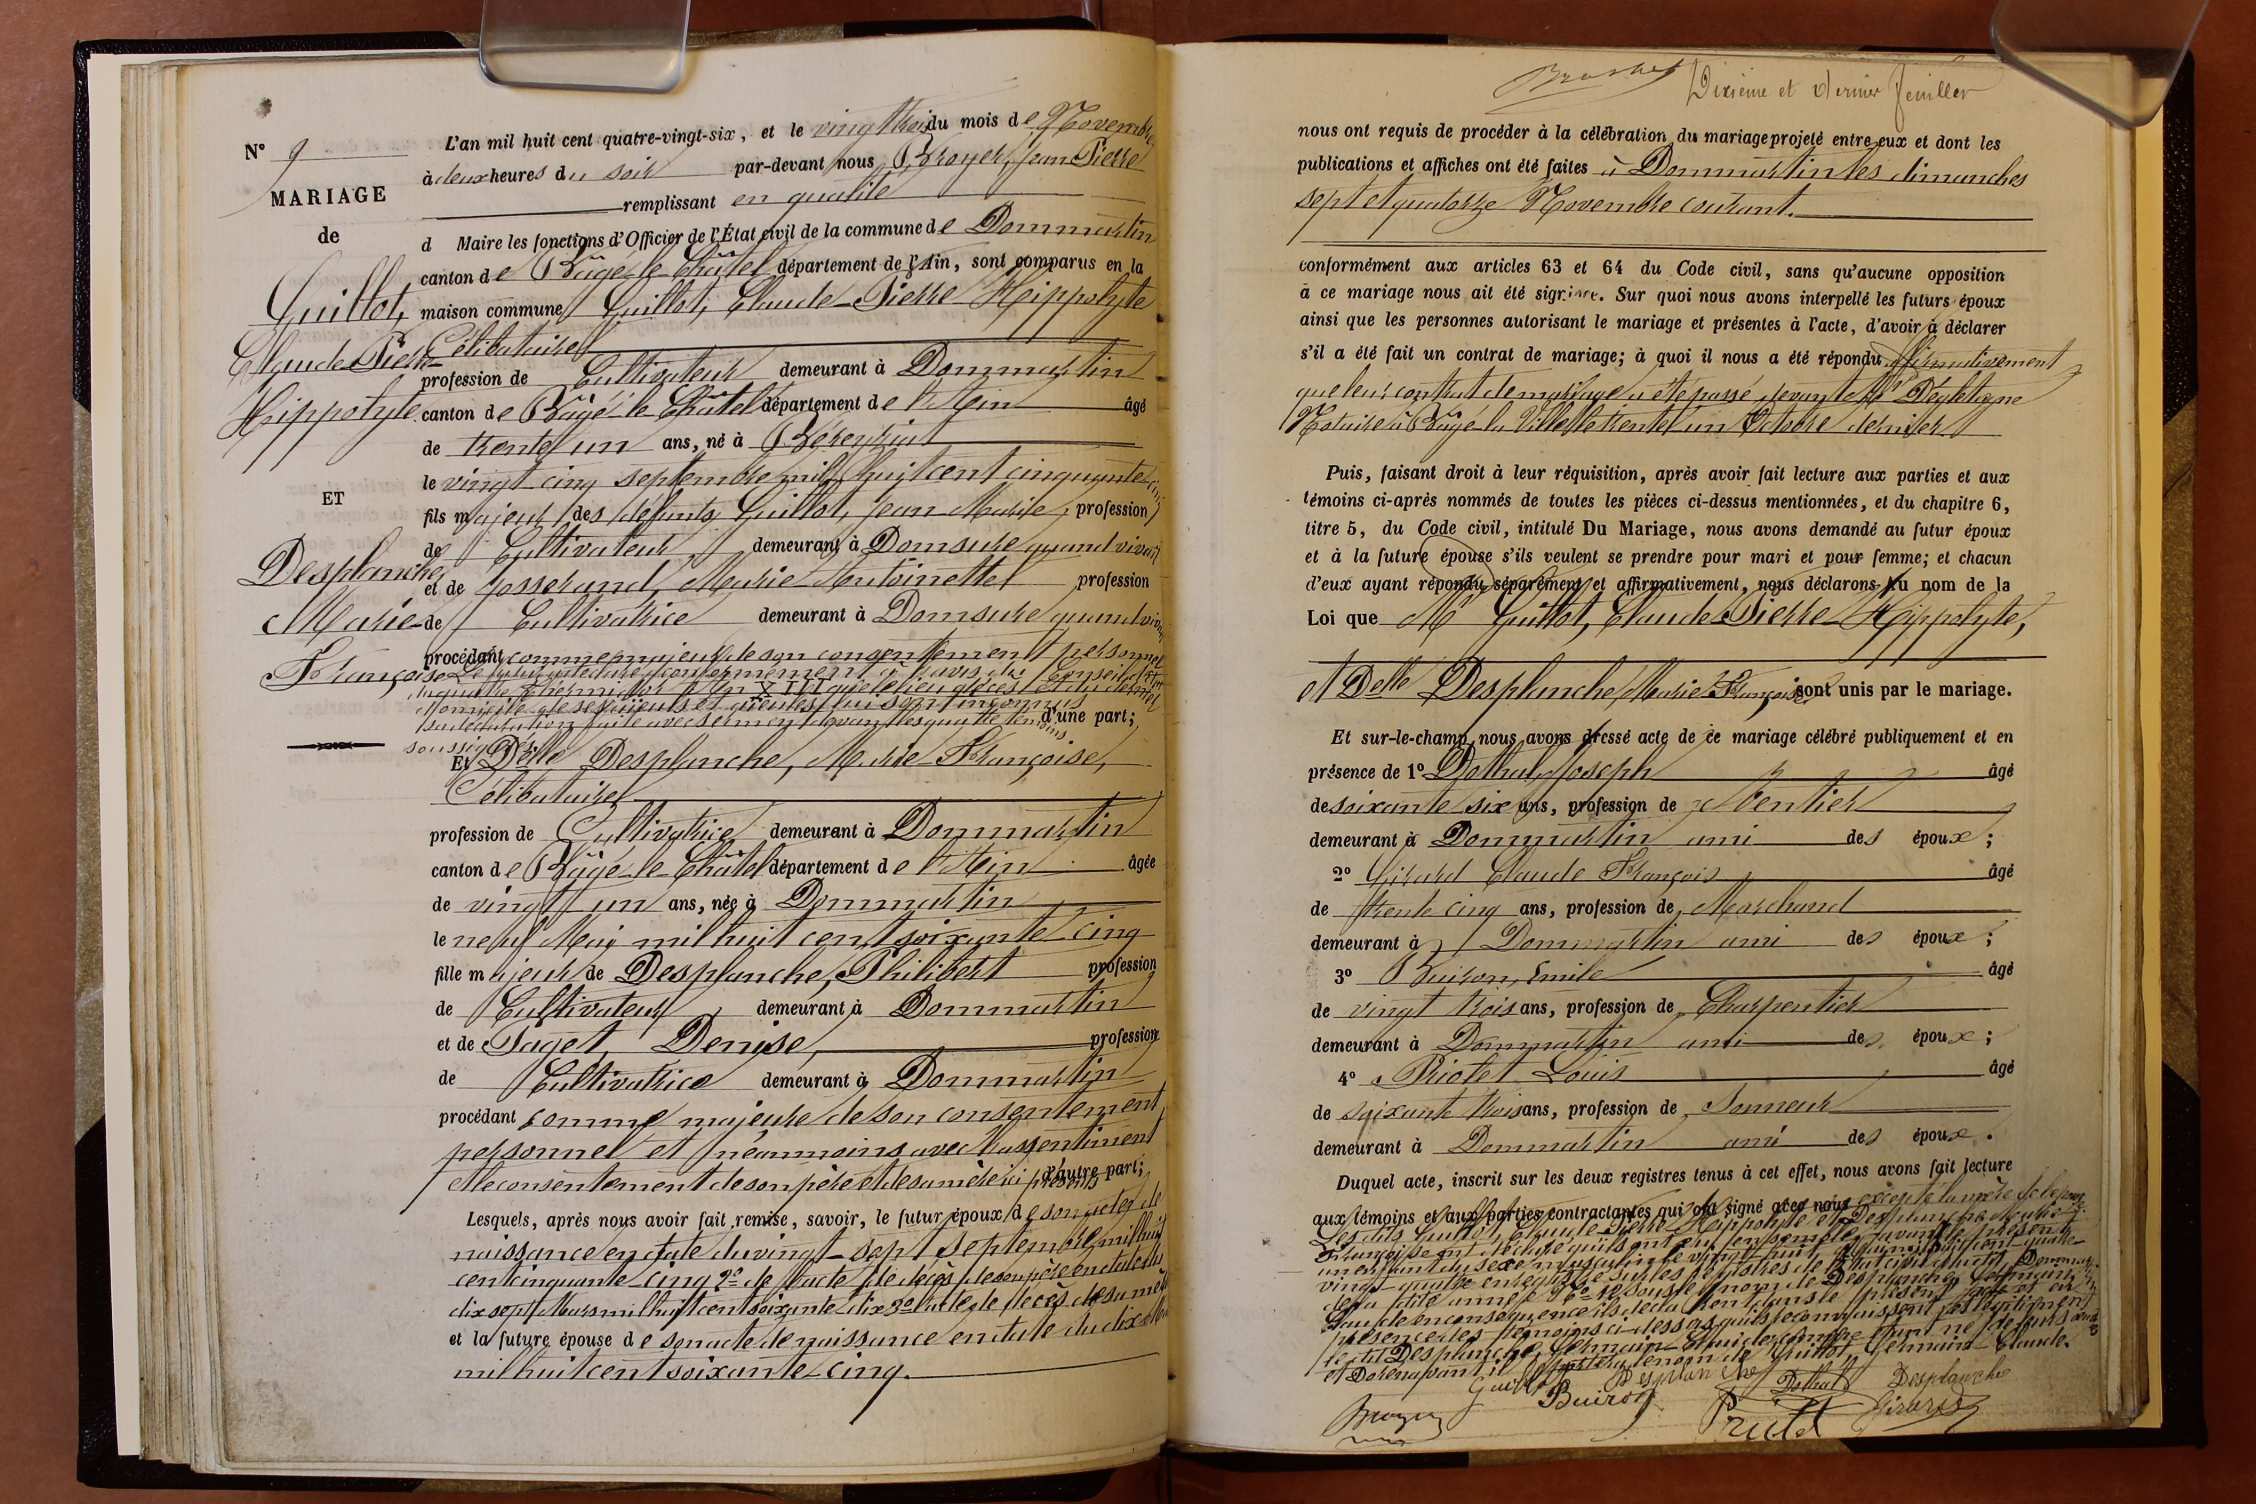 N° 9
MARIAGE
de
Guillot,
Claude Pierre
Hippolyte.
ET
Desplanche
Marie
Françoise
L'an mil huit cent quatre-vingt-six, et le vingt trois du mois de Novembre
à deux heures du soir par-devant nous Broyer, Jean Pierre
remplissant en qualité
d Maire les fonctions d'Officier de l'État civil de la commune de Dommartin
canton de Bâgé-le-Châtel département de l'Ain, sont comparus en la
maison commune Guillot, Claude-Pierre Hippolyte
Célibataire
profession de Cultivateur demeurant à Dommartin
canton de Bâgé-le-Châtel département de l'Ain âgé
de trente un ans, né à Béreyziat
le vingt-cinq septembre mil huit cent cinquante-cinq
fils majeur des défunts Guillot, Jean Marie, profession
de Cultivateur demeurant à Domsure quand vivait
et de Josserand, Marie Antoinette profession
de Cultivatrice demeurant à Domsure quand vivait
procédant comme majeur de son consentement personnel
Le futur déclare conformément à l'avis du Conseil d'Etat
du quatre thermidor An XIII que le lieu décès et du dernier
domicile de ses aïeuls et aïeules lui sont inconnus
sur déclaration faite avec serment devant les quatre témoins d'une part;
soussignés.
Et Delle Desplanche, Marie-Françoise,
Célibataire
profession de Cultivatrice demeurant à Dommartin
canton de Bâgé-le-Châtel département de l'Ain âgée
de vingt un ans, née à Dommartin
le neuf Mai mil huit cent soixante-cinq
fille majeur de Desplanche, Philibert profession
de Cultivateur demeurant à Dommartin
et de Paget, Denise, profession
de Cultivatrice demeurant à Dommartin
procédant comme majeure de son consentement
personnel et néanmoins avec l'assentiment
et le consentement de son père et de sa mère ici présents d'autre part;
Lesquels, après nous avoir fait remise, savoir, le futur époux de son acte de
naissance en date du vingt-sept septembre mil huit
cent cinquante-cinq 2° de l'acte de décès de son père en date du
dix sept Mars mil huit cent soixante dix 3° l'acte de décès de sa mère
et la future épouse de son acte de naissance en date du dix Mai
mil huit cent soixante-cinq.
Dixième et dernier feuillet
nous ont requis de procéder à la célébration du mariage projeté entre eux et dont les
publications et affiches ont été faites à Dommartin les dimanches
sept et quatorze Novembre courant.
conformément aux articles 63 et 64 du Code civil, sans qu'aucune opposition
à ce mariage nous ait été signifiée. Sur quoi nous avons interpellé les futurs époux
ainsi que les personnes autorisant le mariage et présentes à l'acte, d'avoir à déclarer
s'il a été fait un contrat de mariage; à quoi il nous a été répondu affirmativement
que leur contrat de mariage a été passé devant Me Dégletagne
Notaire à Bâgé-la-Ville le trente un Octobre dernier
Puis, faisant droit à leur réquisition, après avoir fait lecture aux parties et aux
témoins ci-après nommés de toutes les pièces ci-dessus mentionnées, et du chapitre 6,
titre 5, du Code civil, intitulé Du Mariage, nous avons demandé au futur époux
et à la future épouse s'ils veulent se prendre pour mari et pour femme; et chacun
d'eux ayant répondu séparément et affirmativement, nous déclarons au nom de la
Loi que Mr Guillot, Claude-Pierre-Hippolyte,
et Delle Desplanche, Marie Françoise sont unis par le mariage.
Et sur-le-champ nous avons dressé acte de ce mariage célébré publiquement et en
présence de 1° Dethal, Joseph âgé
de soixante-six ans, profession de Rentier
demeurant à Dommartin ami des époux;
2° Girard Claude François âgé
de trente cinq ans, profession de Marchand
demeurant à Dommartin ami des époux;
3° Buiron, Emile âgé
de vingt trois ans, profession de Charpentier
demeurant à Dommartin ami des époux;
4° Priolet Louis âgé
de soixante trois ans, profession de Sonneur
demeurant à Dommartin ami des époux.
Duquel acte, inscrit sur les deux registres tenus à cet effet, nous avons fait lecture
aux témoins et aux parties contractantes qui ont signé avec nous excepté la mère de l'épouse
Les dits Guillot, Claude-Pierre-Hippolyte et Desplanche Marie
Françoise ont déclaré qu'ils ont eu ensemble avant le présent
un enfant du sexe masculin le vingt-huit
vingt-quatre enregistré sur les registres de l'Etat civil dudit Dommartin
de la dite année N° 12 sous le nom de Desplanche, Germain
Claude en conséquence ils déclarent dans le présent acte et en
présence des témoins ci-dessus qu'ils reconnaissent et légitiment
le dit Desplanche, Germain-Claude comme étant né de leurs œuvres
et Dorénavant il portera le nom de Guillot, Germain-Claude.
Guillot Desplanche Dethal Desplanche
Broyer Buiron Priolet Girard